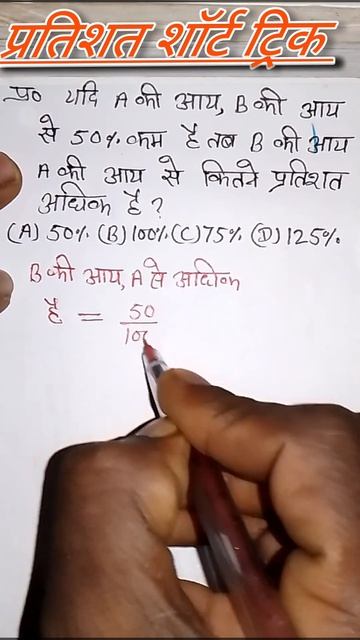 प्रतिशत शॉर्ट ट्रिक
प्र० यदि A की आय, B की आय
से 50% कम है तब B की आय
A की आय से कितने प्रतिशत
अधिक है?
(A) 50%. (B) 100% (C) 75%. (D) 125%.
B की आय, A से अधिक
है = 50
10